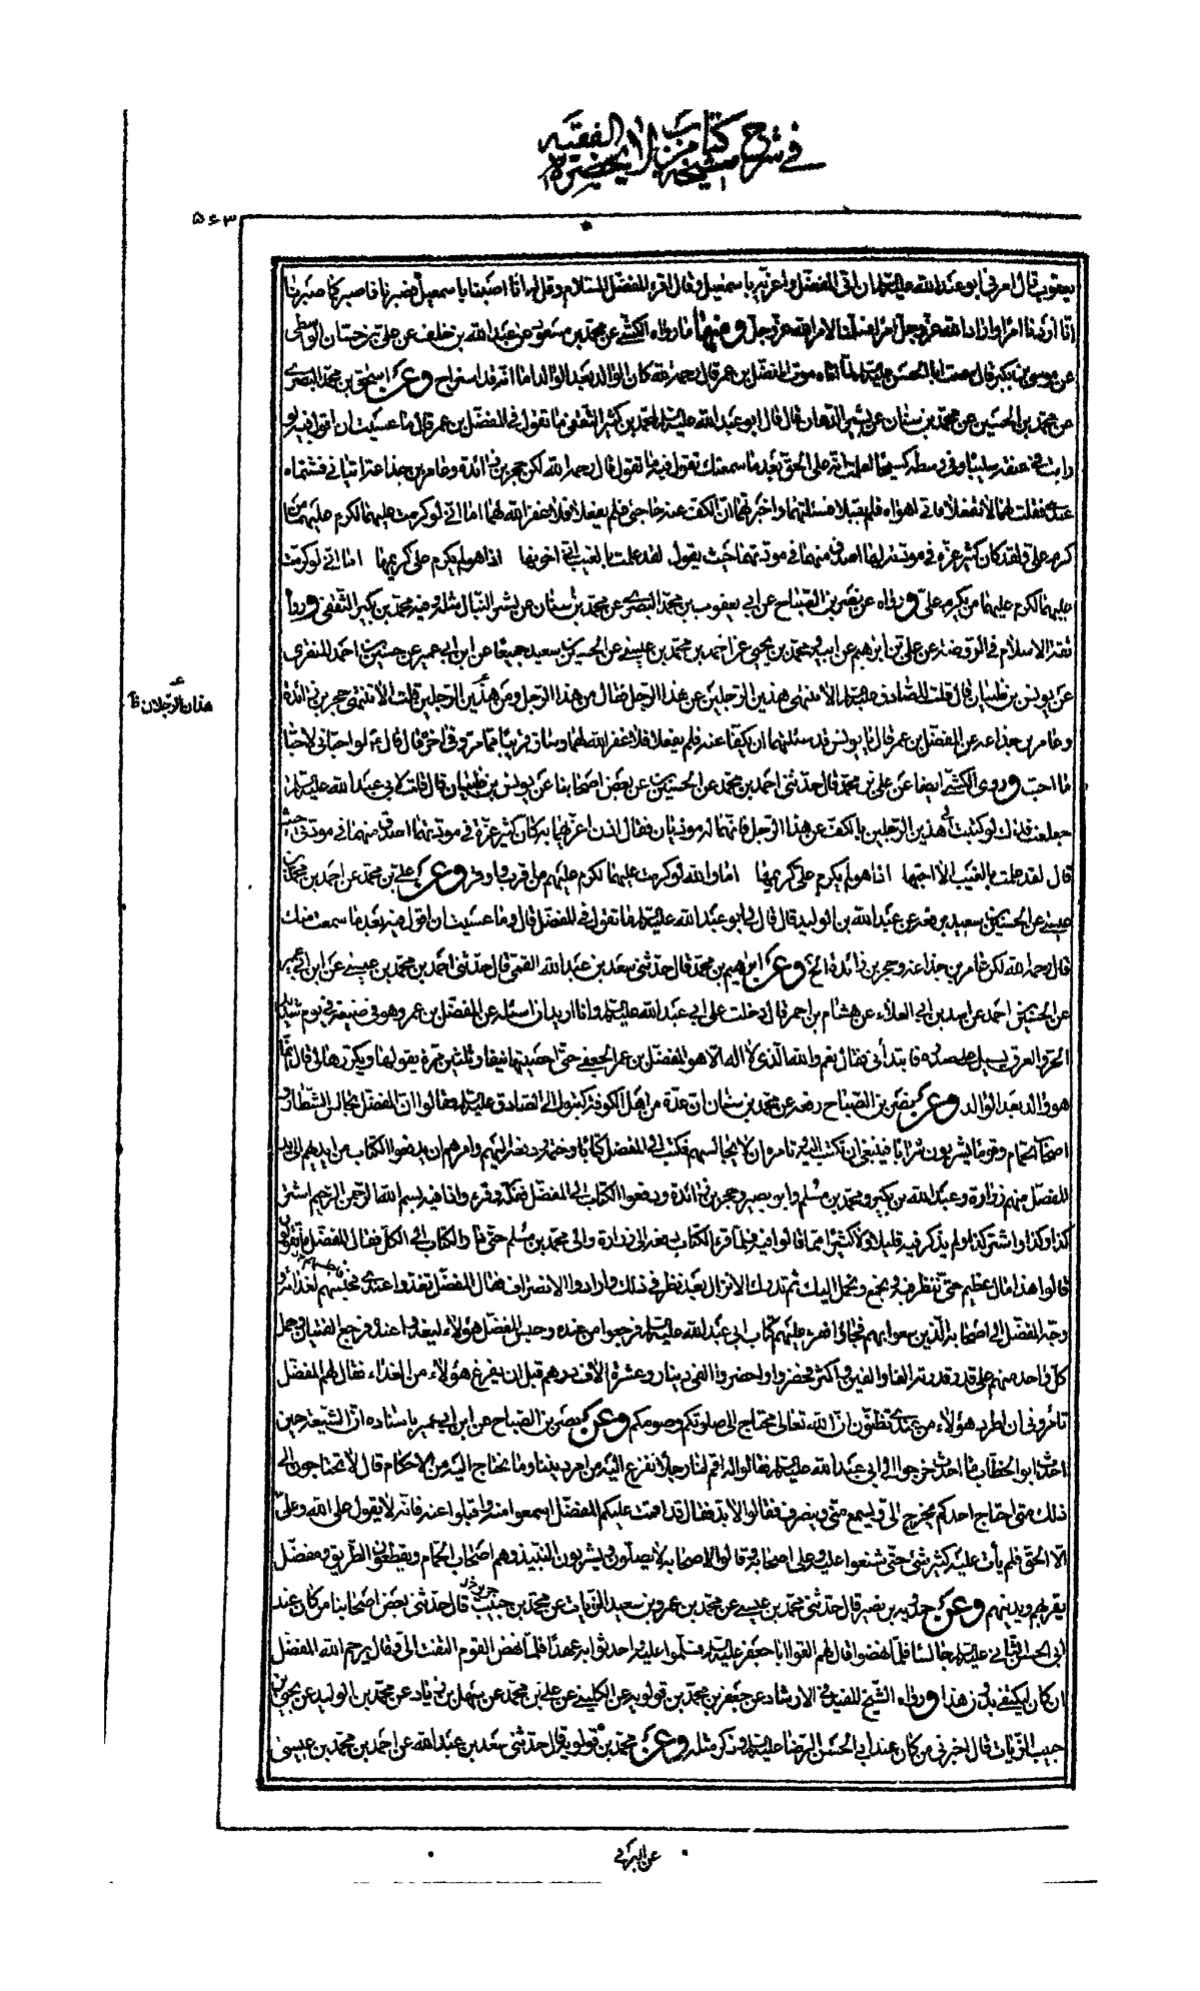 في شرح مشيخة كتاب من لا يحضره الفقيه
٥٦٣
يعقوب قال امرني ابو عبد الله عليه السلام ان اتى المفضل واعزيه باسمعيل وقال اقرء المفضل السلام وقل له انا اصبنا باسمعيل فصبرنا فاصبر كما صبرنا
انا اردنا امرا واراد الله عز وجل امرا فسلمنا لامر الله عز وجل ومنها ما رواه الكشي عن محمد بن مسعود عن عبد الله بن خلف عن علي بن حسان الواسطي
عن موسى بن بكر قال سمعت ابا الحسن عليه السلام لما اتاه موت المفضل بن عمر قال رحمه الله كان الوالد بعد الوالد اما انه قد استراح وعن اسحق بن محمد البصري
عن محمد بن الحسين عن محمد بن سنان عن بشير الدهان قال قال ابو عبد الله عليه السلام لمحمد بن كثير الثقفي ما تقول في المفضل بن عمر قال ما عسيت ان اقول فيه لو
رايت في عنقه صليبا وفي وسطه كسيحا لعلمت انه على الحق بعد ما سمعتك تقول فيه ما تقول قال رحمه الله لكن حجر بن زائدة وعامر بن جذاعة اتياني فشتماه
عندي فقلت لهما لا تفعلا فاني اهواه فلم يقبلا فسئلتهما واخبرتهما ان الكف عنه حاجتي فلم يفعلا فلا غفر الله لهما اما اني لو كرمت عليهما لكرم عليهما من
كرم علي ولقد كان كثير عزة في مودته لها اصدق منهما في مودتهما حيث يقول لقد علمت بالغيب اني اخونها اذا هو لم يكرم علي كريمها اما اني لو كرمت
عليهما لكرم عليهما من يكرم علي ورواه عن نصر بن الصباح عن ابي يعقوب بن محمد البصري عن محمد بن سنان عن بشر النبال مثله وفيه محمد بن كثير الثقفي وروا
ثقة الاسلام في الروضة عن علي بن ابرهيم عن ابيه ومحمد بن يحيى عن احمد بن محمد بن عيسى عن الحسين بن سعيد جميعا عن ابن ابي عمير عن حسين بن احمد المنقري
عن يونس بن ظبيان قال قلت للصادق عليه السلام الا تنهى هذين الرجلين عن هذا الرجل فقال من هذا الرجل ومن هذين الرجلين قلت الا تنهى حجر بن زائدة
هذان الرجلان ظ
وعامر بن جذاعة عن المفضل بن عمر قال يا يونس قد سئلتهما ان يكفا عنه فلم يفعلا فلا غفر الله لهما وساق قريبا مما مر وفي اخره قال قال لو احباني لاحبا
ما احب وروى الكشي ايضا عن علي بن محمد قال حدثني احمد بن محمد عن الحسين عن بعض اصحابنا عن يونس بن ظبيان قال قلت لابي عبد الله عليه السلام
جعلت فداك لو كتبت الى هذين الرجلين بالكف عن هذا الرجل فانهما له موذيان فقال اذن اغريهما به كان كثير عزة في مودتها اصدق منهما في مودتي حيث
قال لقد علمت بالغيب الا احبها اذا هو لم يكرم علي كريمها اما والله لو كرمت عليهما لكرم عليهم من اقرب واوقر وعن علي بن محمد عن احمد بن محمد بن
عيسى عن الحسين بن سعيد يرفعه عن عبد الله بن الوليد قال قال لي ابو عبد الله عليه السلام ما تقول في المفضل قال وما عسيت ان اقول فيه بعد ما سمعت منك
قال رحمه الله لكن عامر بن جذاعة وحجر بن زائدة الخ وعن ابراهيم بن محمد قال حدثني سعد بن عبد الله القمي قال حدثني احمد بن محمد بن عيسى عن ابن ابي عمير
عن الحسين بن احمد عن اسد بن ابي العلاء عن هشام بن احمر قال دخلت على ابي عبد الله عليه السلام وانا اريد ان اسئله عن المفضل بن عمر وهو في ضيعة في يوم شديد
الحر والعرق يسيل على صدره فابتدأني فقال نعم والله الذي لا اله الا هو المفضل بن عمر الجعفي حتى احصيتها نيفا وثلثين مرة يقولها ويكررها لي قال انما
هو والد بعد الوالد وعن نصر بن الصباح رفعه عن محمد بن سنان ان عدة من اهل الكوفة كتبوا الى الصادق عليه السلام فقالوا ان المفضل يجالس الشطار و
اصحاب الحمام وقوما يشربون شرابا فينبغي ان تكتب اليه وتامره ان لا يجالسهم فكتب الى المفضل كتابا وختمه ودفعه اليهم وامرهم ان يدفعوا الكتاب من ايديهم الى يد
المفضل منهم زرارة وعبد الله بن بكير ومحمد بن مسلم وابو بصير وحجر بن زائدة ودفعوا الكتاب الى المفضل ففكه وقرءه وانا فيه بسم الله الرحمن الرحيم اشتر
كذا وكذا واشتر كذا ولم يذكر فيه قليلا ولا كثيرا مما قالوا فيه فلما قرء الكتاب دفعه الى زرارة والى محمد بن مسلم حتى دار الكتاب الى الكل فقال المفضل ما تقولون
قالوا هذا مال عظيم حتى ننظر فيه ونجمع ونحمل اليك ثم ندرك الانزال بعد نظر في ذلك وارادوا الانصراف فقال المفضل تغدوا عندي فحبسهم لغدائه و
وجه المفضل الى اصحابه الذين سعوا بهم فجاؤا فقرء عليهم كتاب ابي عبد الله عليه السلام فرجعوا من عنده وحبس المفضل هؤلاء ليغدوا عنده فرجع الفتيان وحمل
كل واحد منهم على قدر قوته الفا والفين واكثر فحضروا واحضروا الفي دينار وعشرة الاف درهم قبل ان يفرغ هؤلاء من الغداء فقال لهم المفضل
تامروني ان اطرد هؤلاء من عندي تظنون ان الله تعالى محتاج الى صلوتكم وصومكم وعن نصر بن الصباح عن ابن ابي عمير باسناده ان الشيعة حين
احدث ابو الخطاب ما احدث خرجوا الى ابي عبد الله عليه السلام فقالوا له اقم لنا رجلا نفزع اليه من امر ديننا وما نحتاج اليه من الاحكام قال لا تحتاجون الى
ذلك متى احتاج احدكم يخرج الي ويسمع مني وينصرف فقالوا لا بد فقال قد اقمت عليكم المفضل اسمعوا منه واقبلوا عنه فانه لا يقول على الله وعلي
الا الحق فلم يات عليه كثير شئ حتى شنعوا عليه وعلى اصحابه وقالوا اصحابه لا يصلون ويشربون النبيذ وهم اصحاب الحمام ويقطعون الطريق ومفضل
يقربهم ويدنيهم وعن حمدويه بن نصير قال حدثني محمد بن عيسى عن محمد بن عمرو بن سعيد الزيات عن محمد بن حبيب قال حدثني بعض اصحابنا من كان عند
ابي الحسن الثاني عليه السلام جالسا فلما نهضوا قال لهم القوا ابا جعفر عليه السلام فسلموا عليه واحدثوا به عهدا فلما نهض القوم التفت الي وقال يرحم الله المفضل
ان كان ليكتفي بدون هذا ورواه الشيخ المفيد في الارشاد عن جعفر بن محمد بن قولويه عن الكليني عن علي بن محمد عن سهل بن زياد عن محمد بن الوليد عن يحيى بن
حبيب الزيات قال اخبرني من كان عند ابي الحسن الرضا عليه السلام وذكر مثله وعن محمد بن قولويه قال حدثني سعد بن عبد الله عن احمد بن محمد بن عيسى
عن البرقي